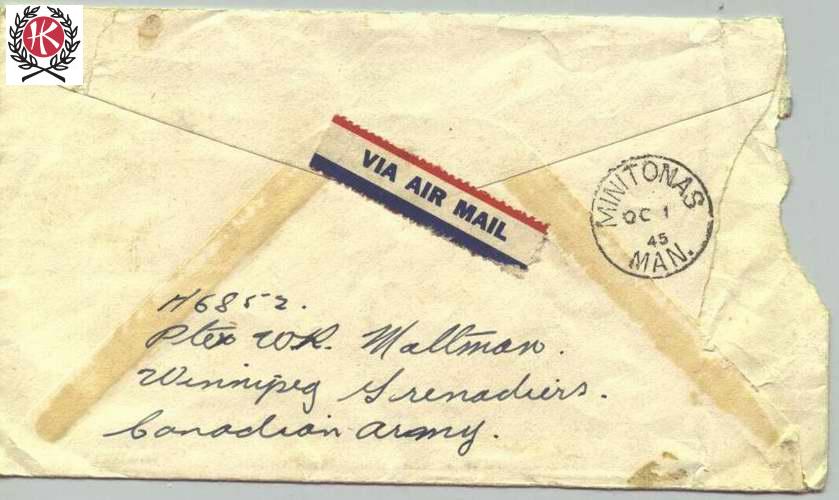 HK
VIA AIR MAIL
MINITONAS
OC 1
45
MAN.
H6852.
Pte W.R. Maltman.
Winnipeg Grenadiers.
Canadian Army.